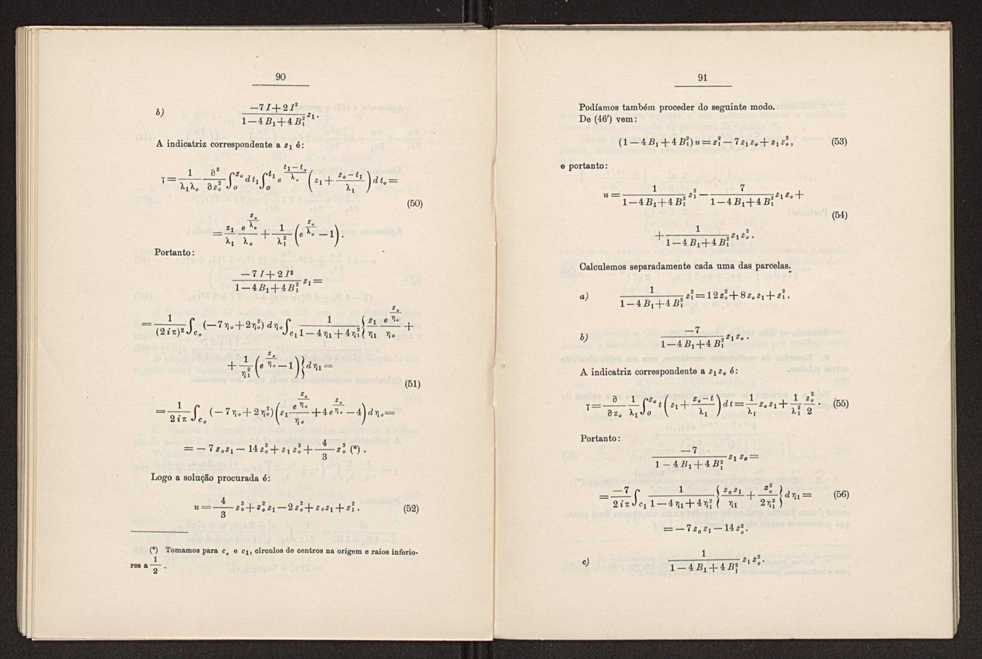 90
b) \frac{-7I+2I^2}{1-4B_1+4B_1^2} z_1.
A indicatriz correspondente a z_1 é:
γ = \frac{1}{λ_1λ_o} \frac{∂^2}{∂z_o^2} ∫_o^{z_o} dt_1 ∫_o^{t_1} e^{\frac{t_1-t_o}{λ_o}} (z_1 + \frac{z_o-t_1}{λ_1}) dt_o =
(50)
= \frac{z_1}{λ_1} \frac{e^{\frac{z_o}{λ_o}}}{λ_o} + \frac{1}{λ_1^2} (e^{\frac{z_o}{λ_o}} - 1).
Portanto:
\frac{-7I+2I^2}{1-4B_1+4B_1^2} z_1 =
= \frac{1}{(2iπ)^2} ∫_{c_o} (-7η_o+2η_o^2) dη_o ∫_{c_1} \frac{1}{1-4η_1+4η_1^2} { \frac{z_1}{η_1} \frac{e^{\frac{z_o}{η_o}}}{η_o} +
+ \frac{1}{η_1^2} (e^{\frac{z_o}{η_o}} - 1) } dη_1 =
(51)
= \frac{1}{2iπ} ∫_{c_o} (-7η_o+2η_o^2) (z_1 \frac{e^{\frac{z_o}{η_o}}}{η_o} + 4e^{\frac{z_o}{η_o}} - 4) dη_o =
= -7z_oz_1 - 14z_o^2 + z_1z_o^2 + \frac{4}{3} z_o^3 (*).
Logo a solução procurada é:
u = \frac{4}{3} z_o^3 + z_o^2 z_1 - 2z_o^2 + z_oz_1 + z_1^2. (52)
(*) Tomamos para c_o e c_1, círculos de centros na origem e raios inferio-
res a \frac{1}{2}.
91
Podíamos também proceder do seguinte modo.
De (46′) vem:
(1-4B_1+4B_1^2) u = z_1^2 - 7z_1z_o + z_1z_o^2, (53)
e portanto:
u = \frac{1}{1-4B_1+4B_1^2} z_1^2 - \frac{7}{1-4B_1+4B_1^2} z_1z_o +
(54)
+ \frac{1}{1-4B_1+4B_1^2} z_1z_o^2.
Calculemos separadamente cada uma das parcelas.
a) \frac{1}{1-4B_1+4B_1^2} z_1^2 = 12z_o^2 + 8z_oz_1 + z_1^2.
b) \frac{-7}{1-4B_1+4B_1^2} z_1z_o.
A indicatriz correspondente a z_1z_o é:
γ = \frac{∂}{∂z_o} \frac{1}{λ_1} ∫_o^{z_o} t (z_1 + \frac{z_o-t}{λ_1}) dt = \frac{1}{λ_1} z_oz_1 + \frac{1}{λ_1^2} \frac{z_o^2}{2}. (55)
Portanto:
\frac{-7}{1-4B_1+4B_1^2} z_1z_o =
= \frac{-7}{2iπ} ∫_{c_1} \frac{1}{1-4η_1+4η_1^2} { \frac{z_oz_1}{η_1} + \frac{z_o^2}{2η_1^2} } dη_1 = (56)
= -7z_oz_1 - 14z_o^2.
c) \frac{1}{1-4B_1+4B_1^2} z_1z_o^2.